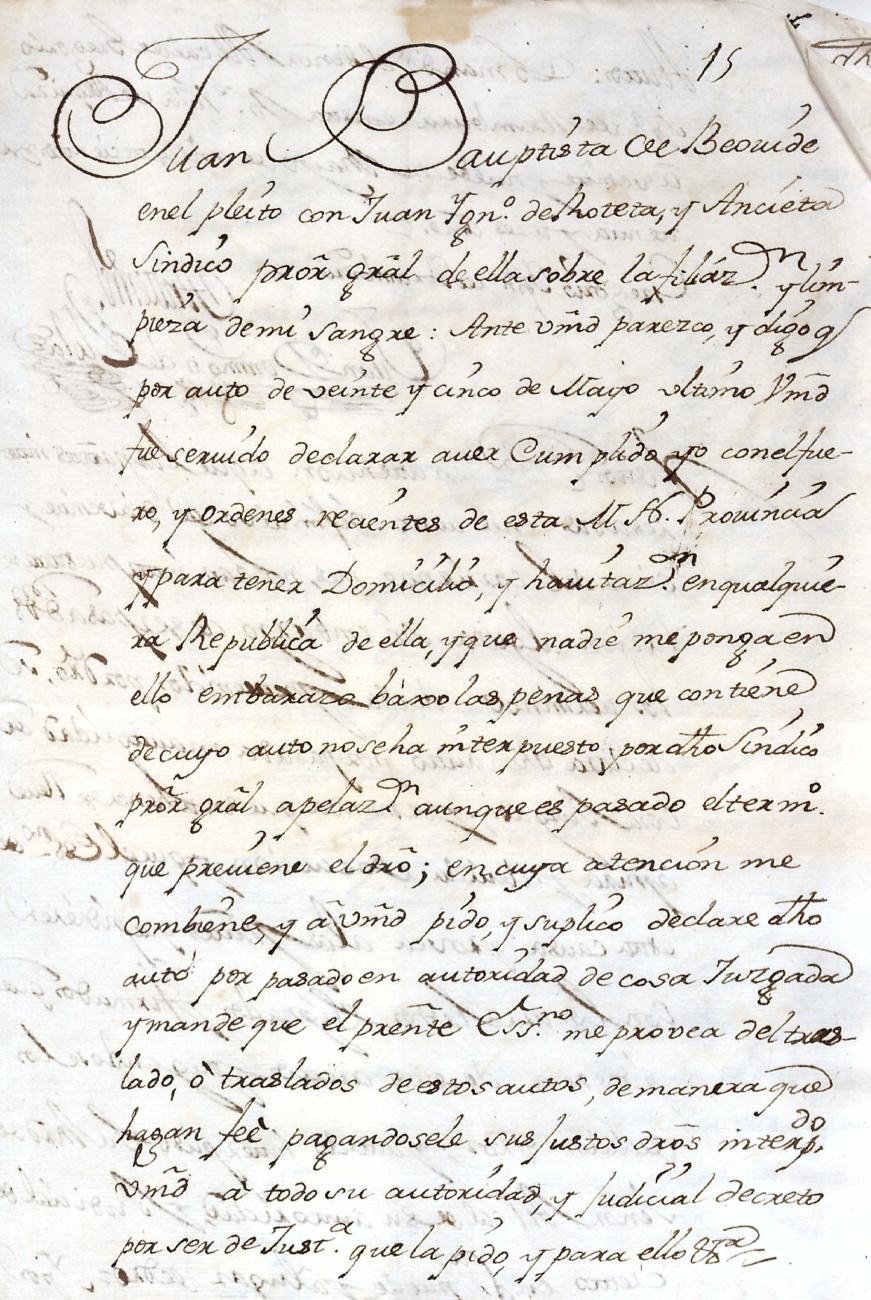 15
Juan Bauptista de Beouide
enel pleito con Juan Ygn.º de Roteta, y Ancieta
Sindico pror̃ gral̃ de ella sobre la filiaz.n y lim-
pieza de mi sangre: Ante vm̃d parezco, y digo q
por auto de veinte y cinco de Mayo vltimo Vm̃d
fue seruido declarar auer Cumplido yo conel fue-
ro, y ordenes recientes de esta M. N. Prouincia
y para tener Domicilio, y hauitaz.n en qualquie-
ra Republica de ella, y que nadie me ponga en
ello embarazo bàxo las penas que contiene
de cuyo auto no se ha interpuesto por dho Sindico
pror̃ gral̃ apelaz.n aunque es pasado el termº.
que preuiene el drõ; en cuya atencion me
combiene, y à vm̃d pido, y suplico declare dho
auto por pasado en autoridad de cosa Juzgada
y mande que el preñte Ess.no me provea del tras-
lado, ò traslados de estos autos, de manera que
hagan feè pagandosele sus Justos drõs interp.do
vm̃d à todo su autoridad, y Judicial decreto
por ser de Just.a que la pido, y para ello &ra